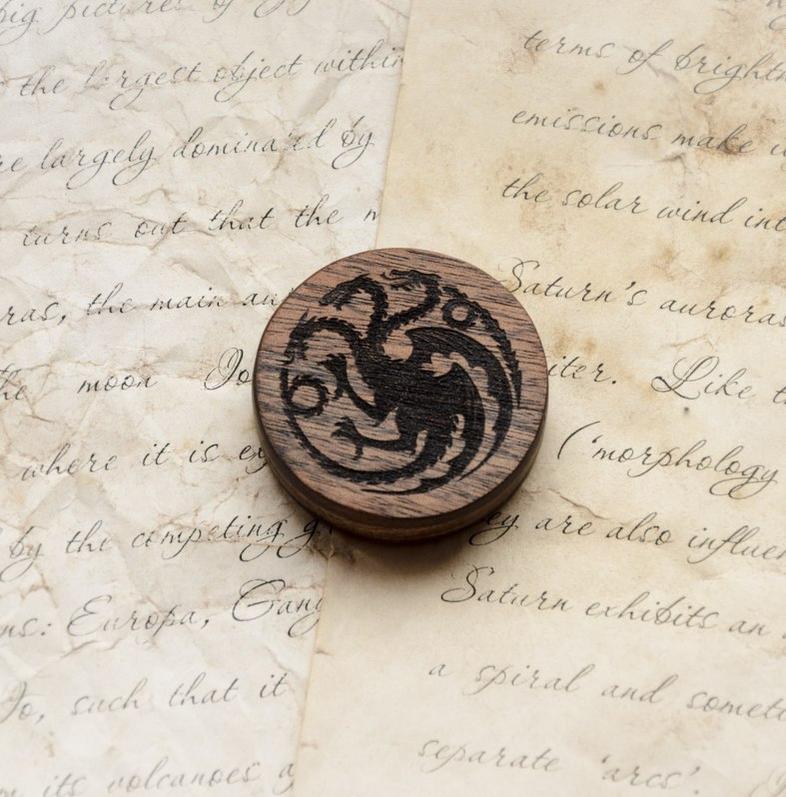 big pictures of
the largest object within
re largely dominated by
turns out that the
ras, the main au
he moon Io
where it is ex
by the competing g
ns: Europa, Gany
Io, such that it
m its volcanoes a
terms of brightn
emissions make
the solar wind int
Saturn's auroras
iter. Like t
('morphology
ey are also influen
Saturn exhibits an
a spiral and someti
separate 'arcs'.